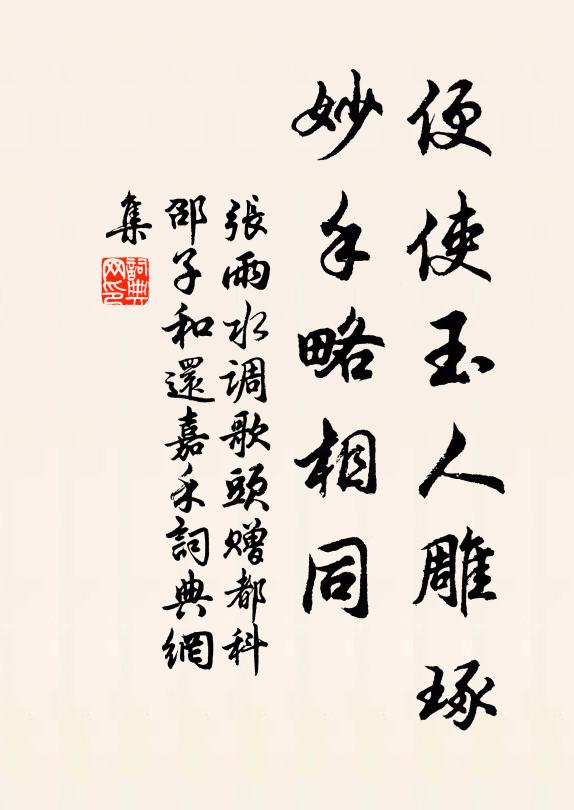 便使玉人雕琢
妙手略相同
張雨水调歌頭赠都科
邵子和還嘉禾詞典網
集
詞典
网印